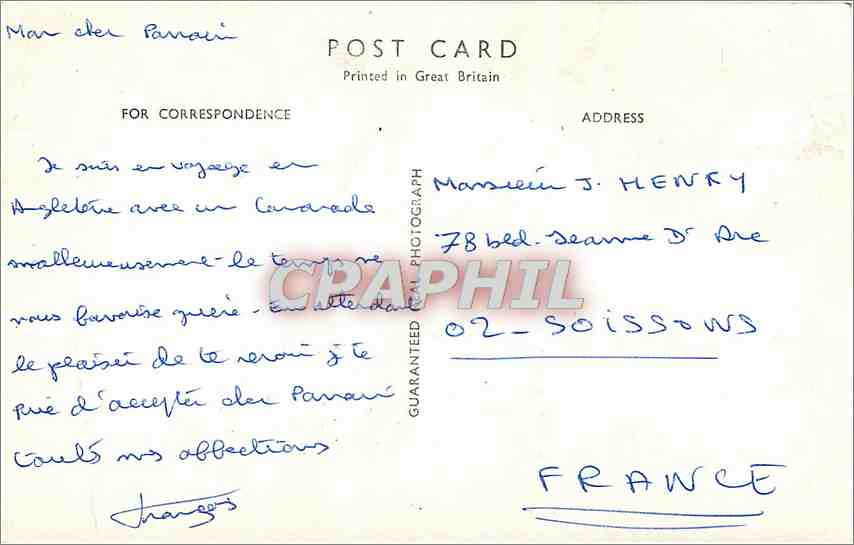 Mon cher Parrain
POST CARD
Printed in Great Britain
FOR CORRESPONDENCE
ADDRESS
Je suis en voyage en
Angleterre avec un Camarade
malheureusement le temps ne
nous favorise guère - En attendant
le plaisir de te revoir je te
prie d'accepter cher Parrain
toutes mes affections
François
GUARANTEED REAL PHOTOGRAPH
Monsieur J. HENRY
78 bld. Jeanne D'Arc
02 - SOISSONS
FRANCE
CPAPHIL